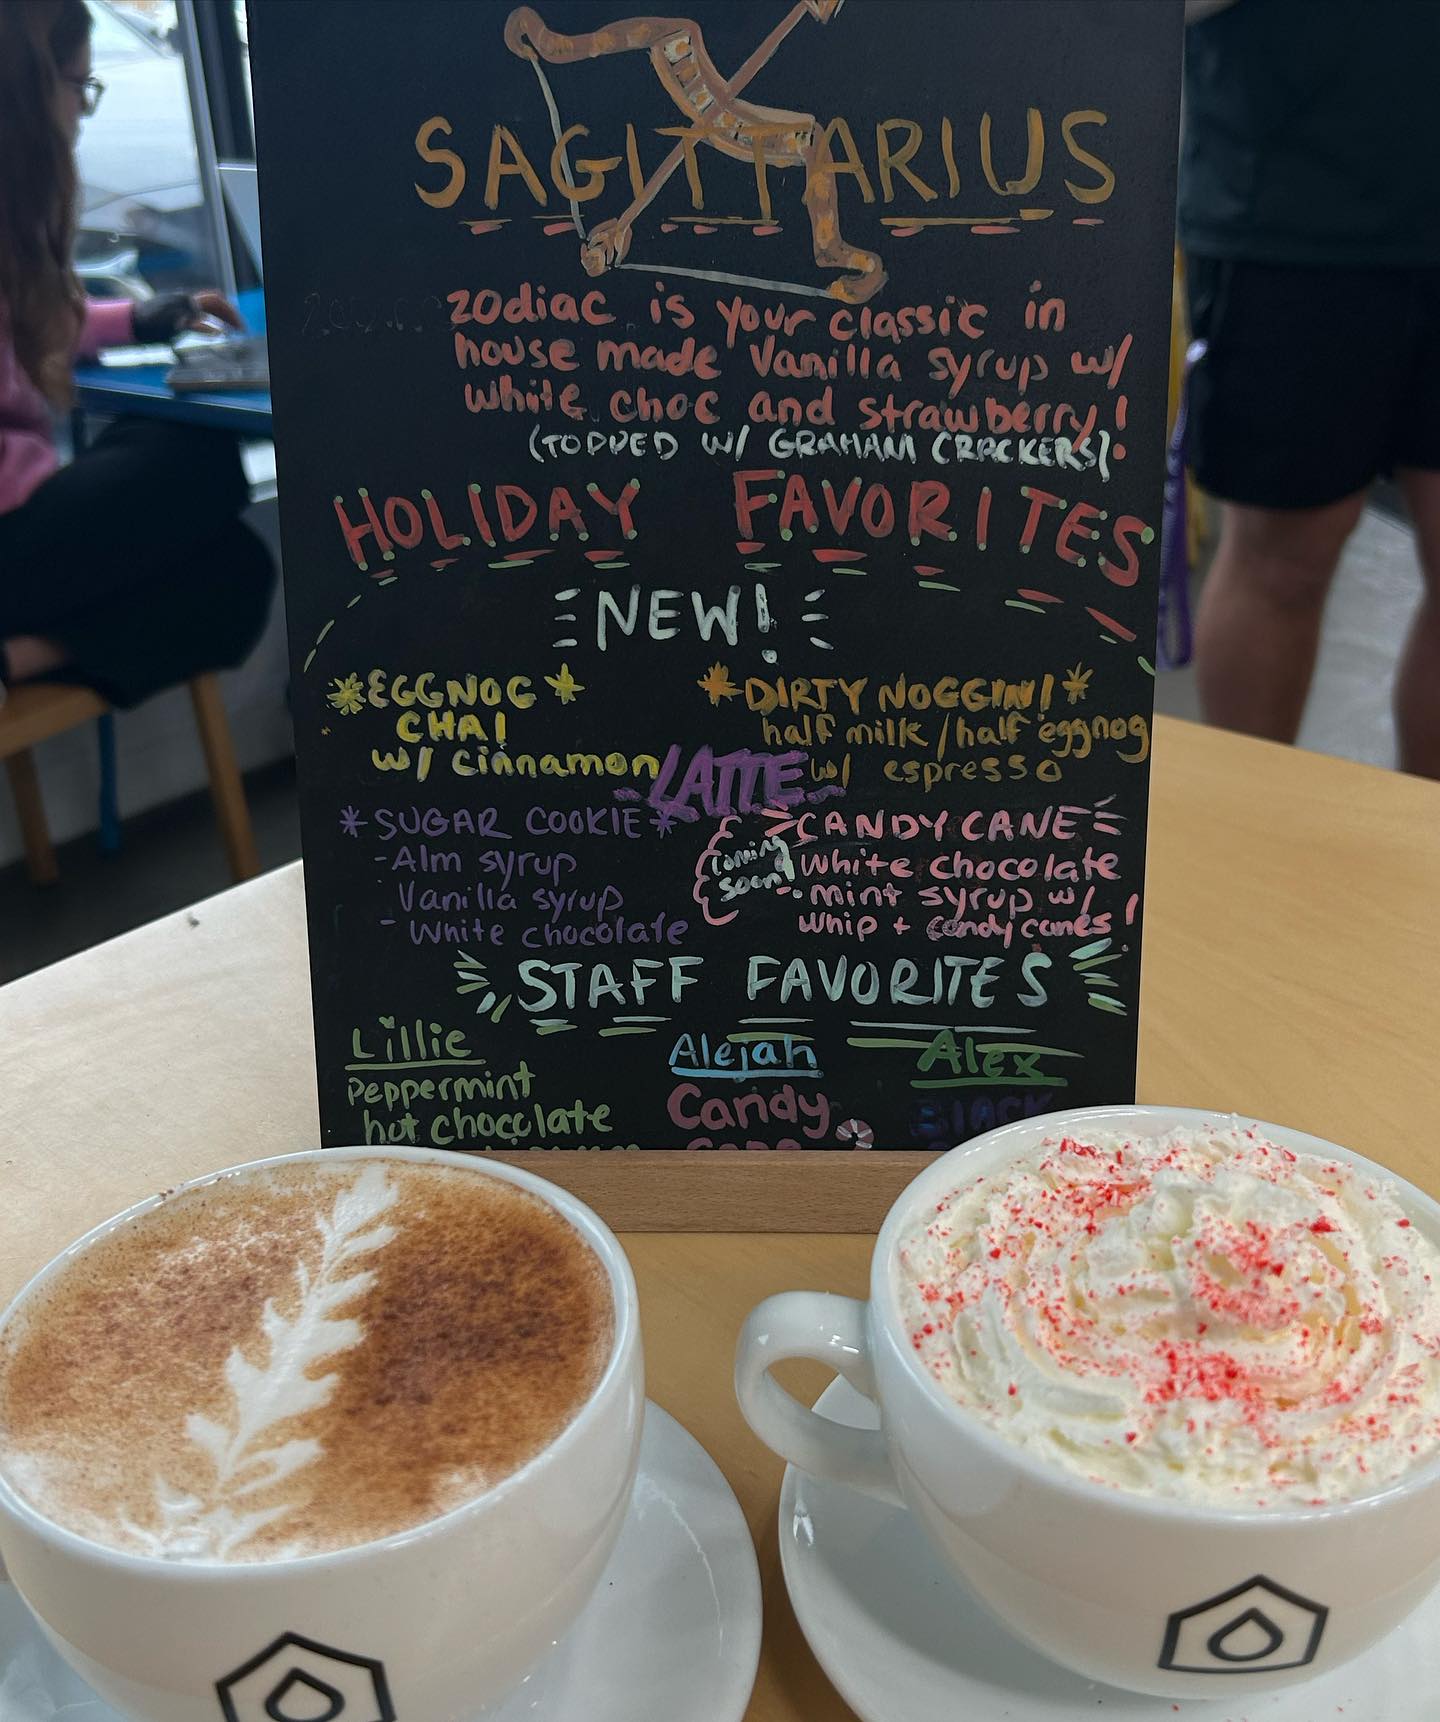 SAGITTARIUS
zodiac is your classic in
house made Vanilla syrup w/
white choc and strawberry!
(TOPPED W/ GRAHAM CRACKERS)
HOLIDAY FAVORITES
NEW!
*EGGNOG*
CHAI
w/ cinnamon
*DIRTY NOGGIN!*
half milk/half eggnog
w/ espresso
LATTE
*SUGAR COOKIE*
-Alm syrup
Vanilla syrup
- White chocolate
coming
soon!
CANDY CANE
white chocolate
mint syrup w/
whip + candy canes!
STAFF FAVORITES
Lillie
Peppermint
hot chocolate
Alejah
Candy
Cane
Alex
Black